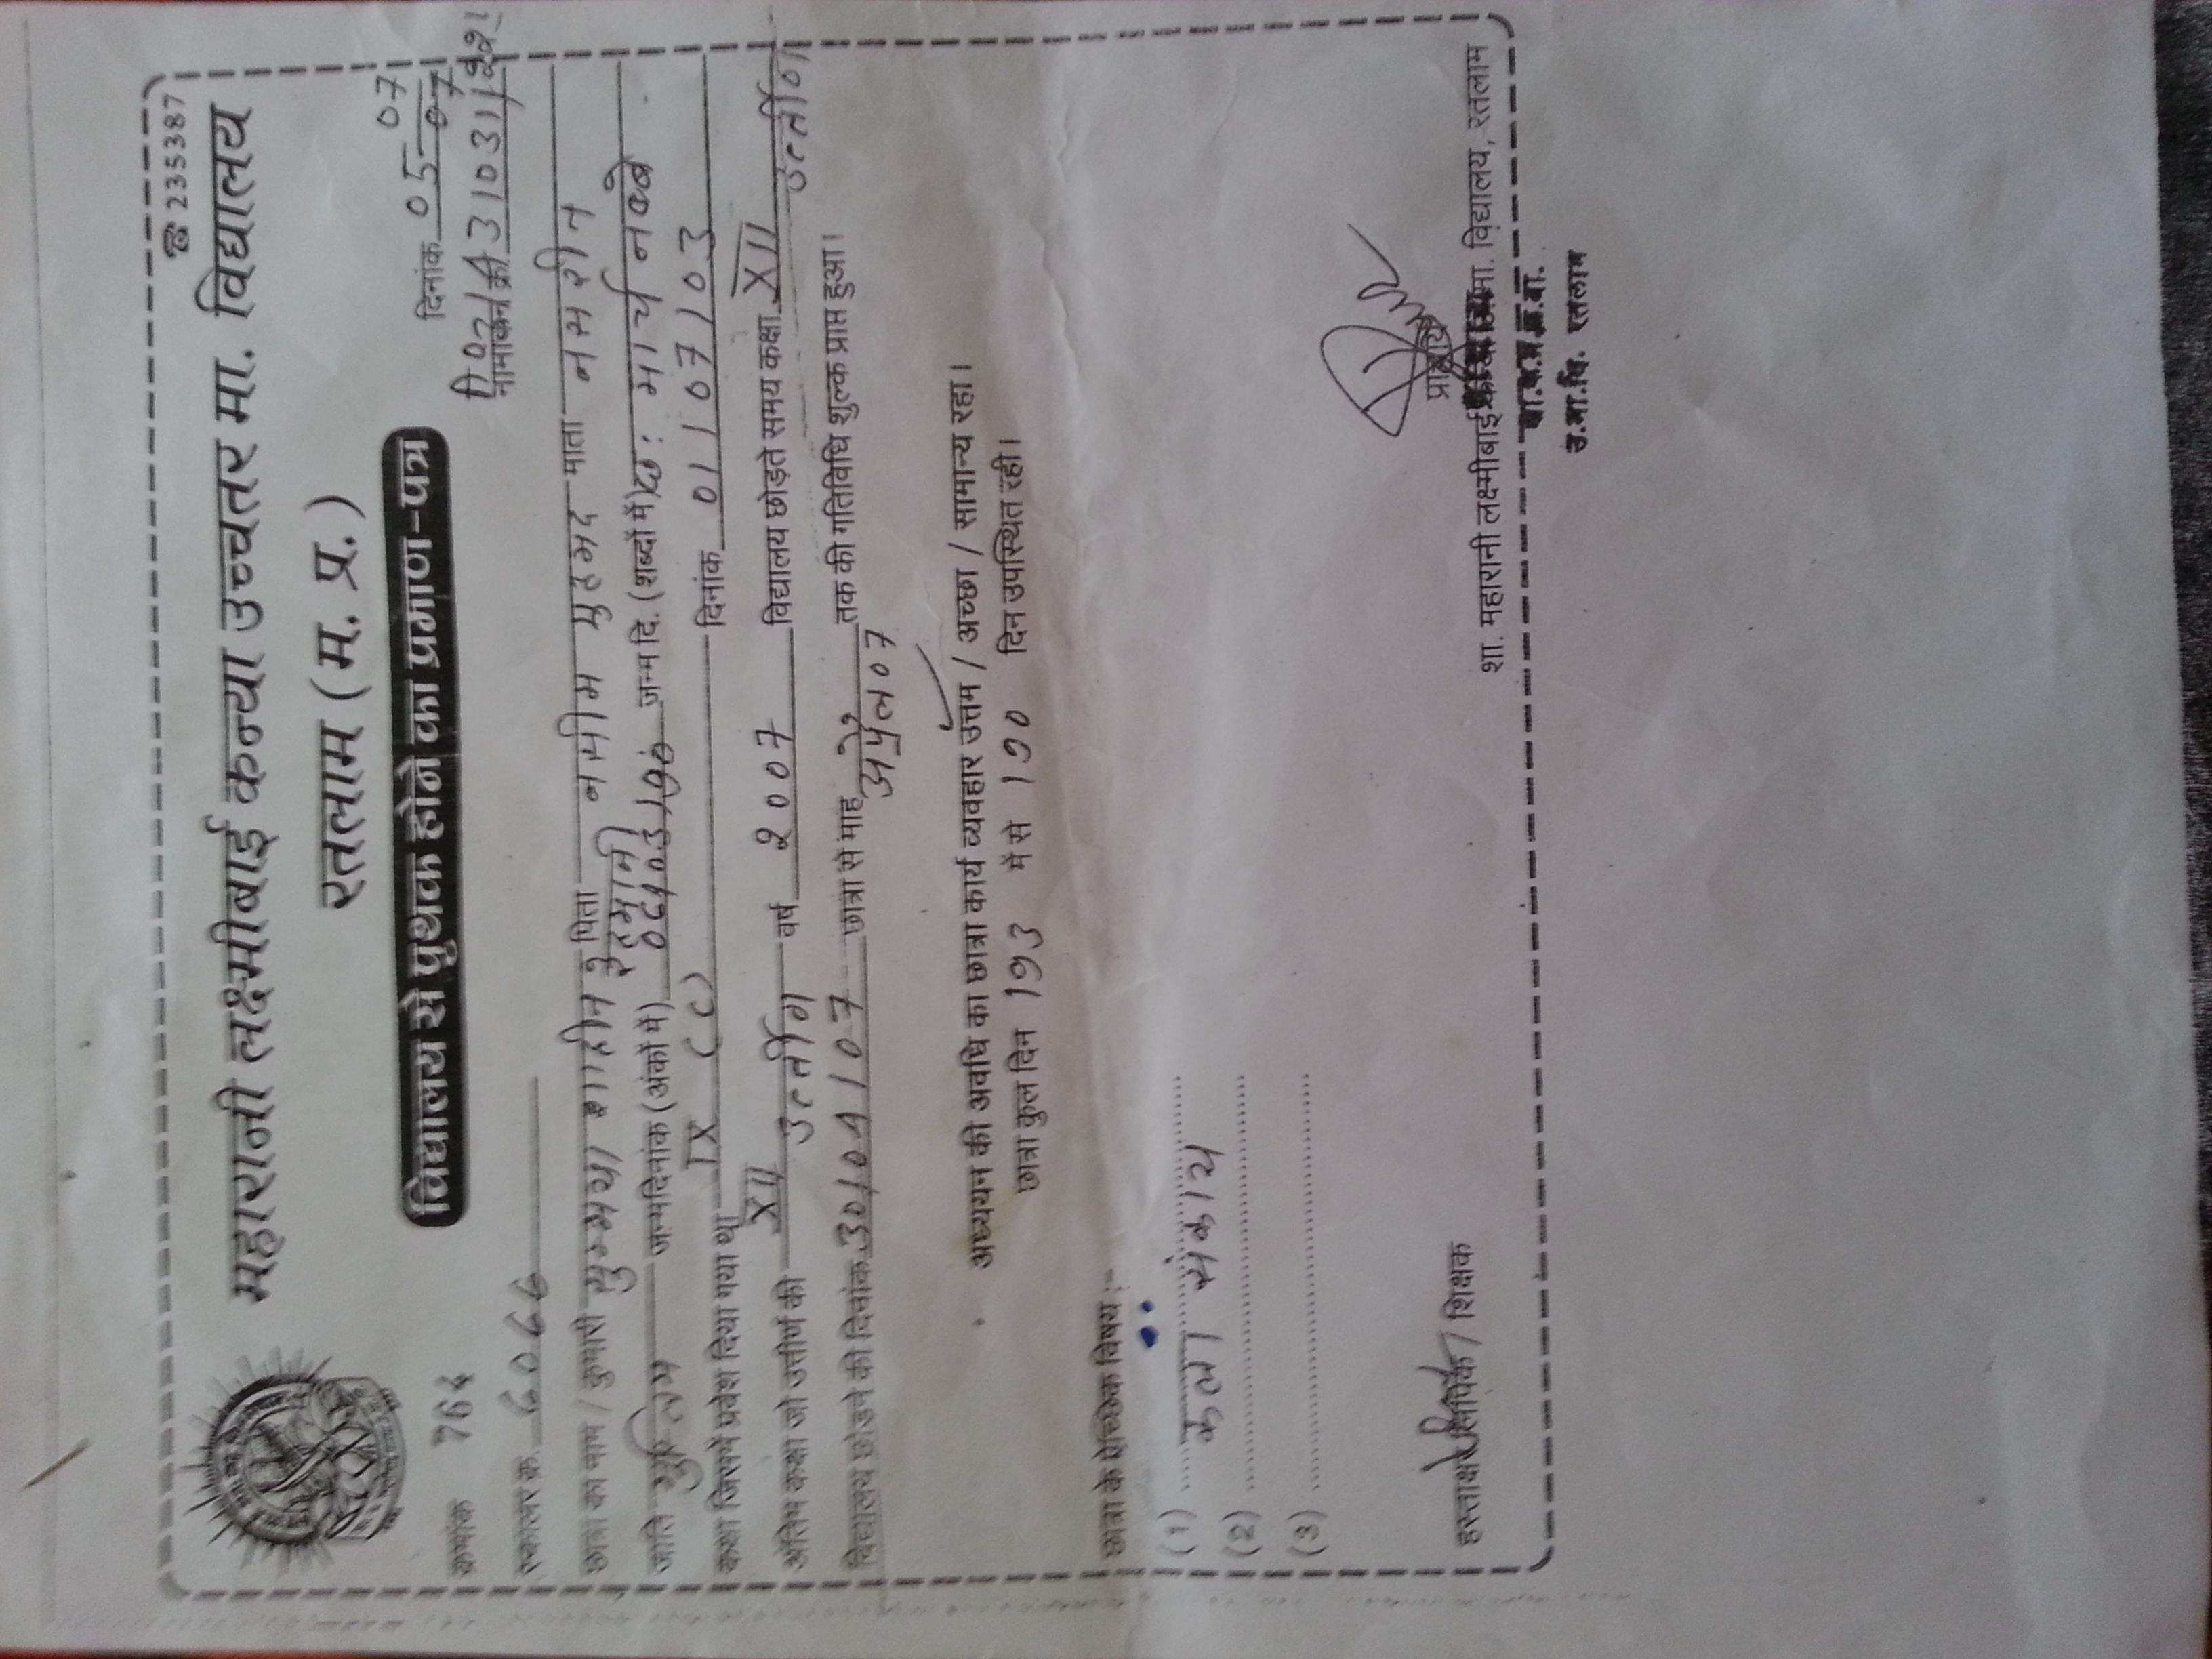 ☎ 235387
महारानी लक्ष्मीबाई कन्या उच्चतर मा. विद्यालय
रतलाम (म. प्र.)
विद्यालय से पृथक होने का प्रमाण-पत्र
दिनांक 05-07-07
क्रमांक 764
नामांकन क्र.
स्कालर क्र. 6066
छात्रा का नाम / कुमारी सुम्मया शाहीन रेहमानी पिता नसीम मुहमद माता नसरीन
जाति मुस्लिम जन्मदिनांक (अंकों में) 06/03/90 जन्म दि. (शब्दों में) छः मार्च नब्बे
कक्षा जिसमें प्रवेश दिया गया था IX (C) दिनांक 01/07/03
अंतिम कक्षा जो उत्तीर्ण की XII उर्त्तीण वर्ष 2007 विद्यालय छोड़ते समय कक्षा XII उर्त्तीण
विद्यालय छोडने की दिनांक 30/04/07 छात्रा से माह अप्रैल 07 तक की गतिविधि शुल्क प्राप्त हुआ।
अध्ययन की अवधि का छात्रा कार्य व्यवहार उत्तम / अच्छा / सामान्य रहा।
छात्रा कुल दिन 193 में से 190 दिन उपस्थित रही।
छात्रा के ऐच्छिक विषय :-
(1) कला संकाय
(2)
(3)
हस्ताक्षर लिपिक / शिक्षक
प्राचार्य
शा. महारानी लक्ष्मीबाई कन्या उ. मा. विद्यालय, रतलाम
उ.मा.वि. रतलाम